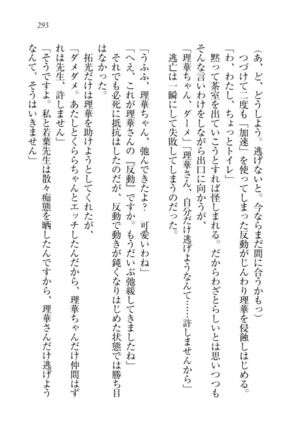 293
（あ、ど、どうしよう。逃げないと。今ならまだ間に合うかもっ）
つづけて二度も「加速」を使ってしまった反動がじんわり理華を侵蝕しはじめる。
「わ、わたし、ちょっとトイレ」
黙って茶室を出ていこうとすれば怪しまれる。だからわざとらしいと思いつつも
そんな言いわけをしながら出口に向かうが、
「理華ちゃん、ダーメ」「理華さん、自分だけ逃げようなんて……許しませんから」
逃亡は一瞬にして失敗してしまうのだった。
「うふふ、理華ちゃん、弛んできたよ？　可愛いわね」
「へえ、これが理華さんの『反動』ですか。もうだいぶ弛緩してきましたね」
それでも必死に抵抗はしたのだが、反動で動きが鈍くなりはじめた状態では勝ち目
はなかった。
拓光だけは理華を助けようとしてくれたが、
「ダメダメ。あたしとくららちゃんとエッチしたんだから、理華ちゃんだけ仲間はず
れは先生、許しません」
「そうですよ。私と若葉先生は散々痴態を晒したんですから、理華さんだけ逃げよう
なんて、そうはいきません」